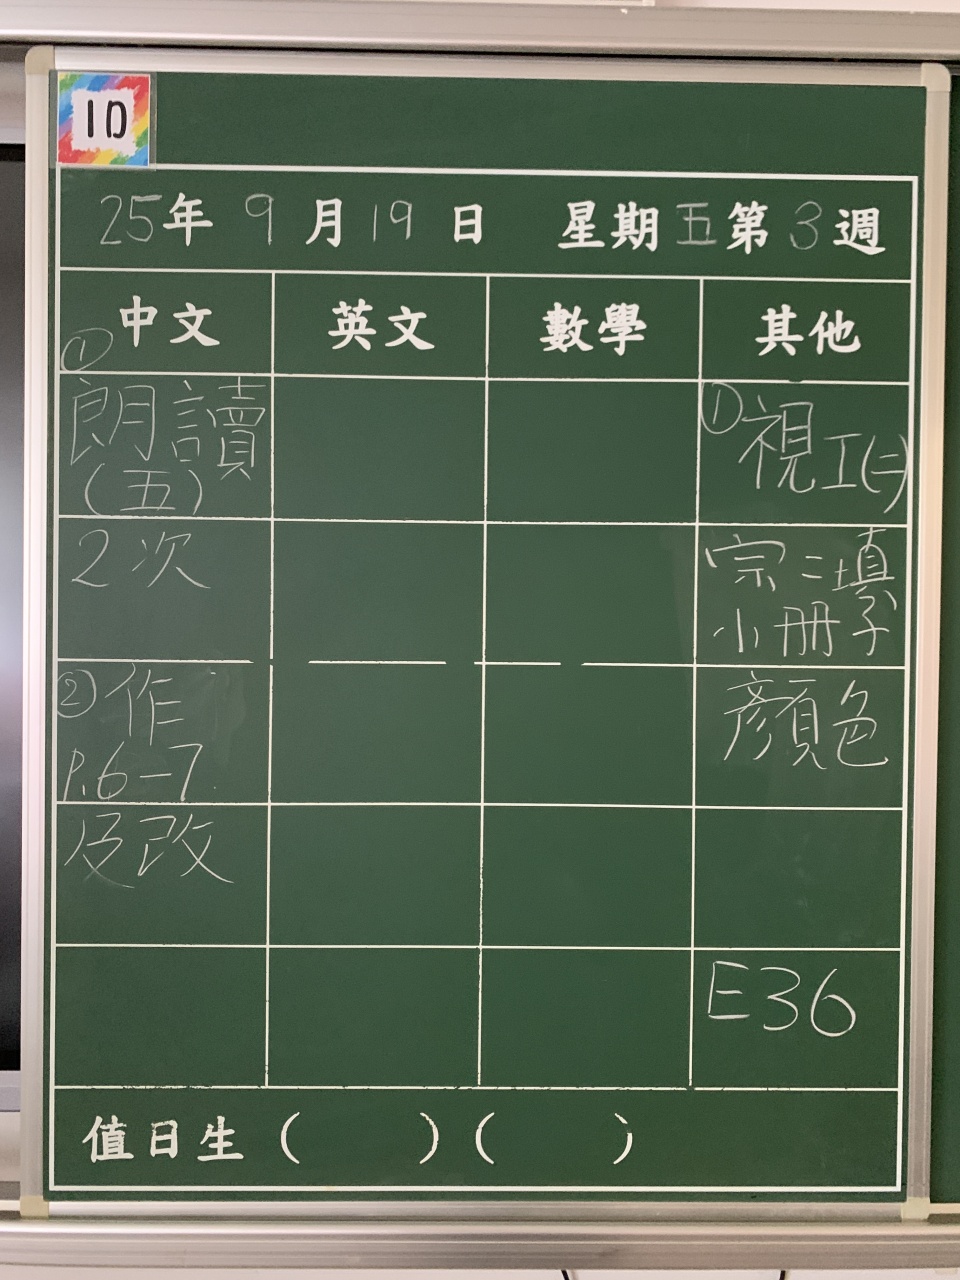 1D
25年 9月19日 星期五第3週
中文 英文 數學 其他
①
朗讀
(五)
2次
②作
P.6-7
及改
①視工(二)
宗二填
小冊子
顏色
E36
值日生 ( ) ( )